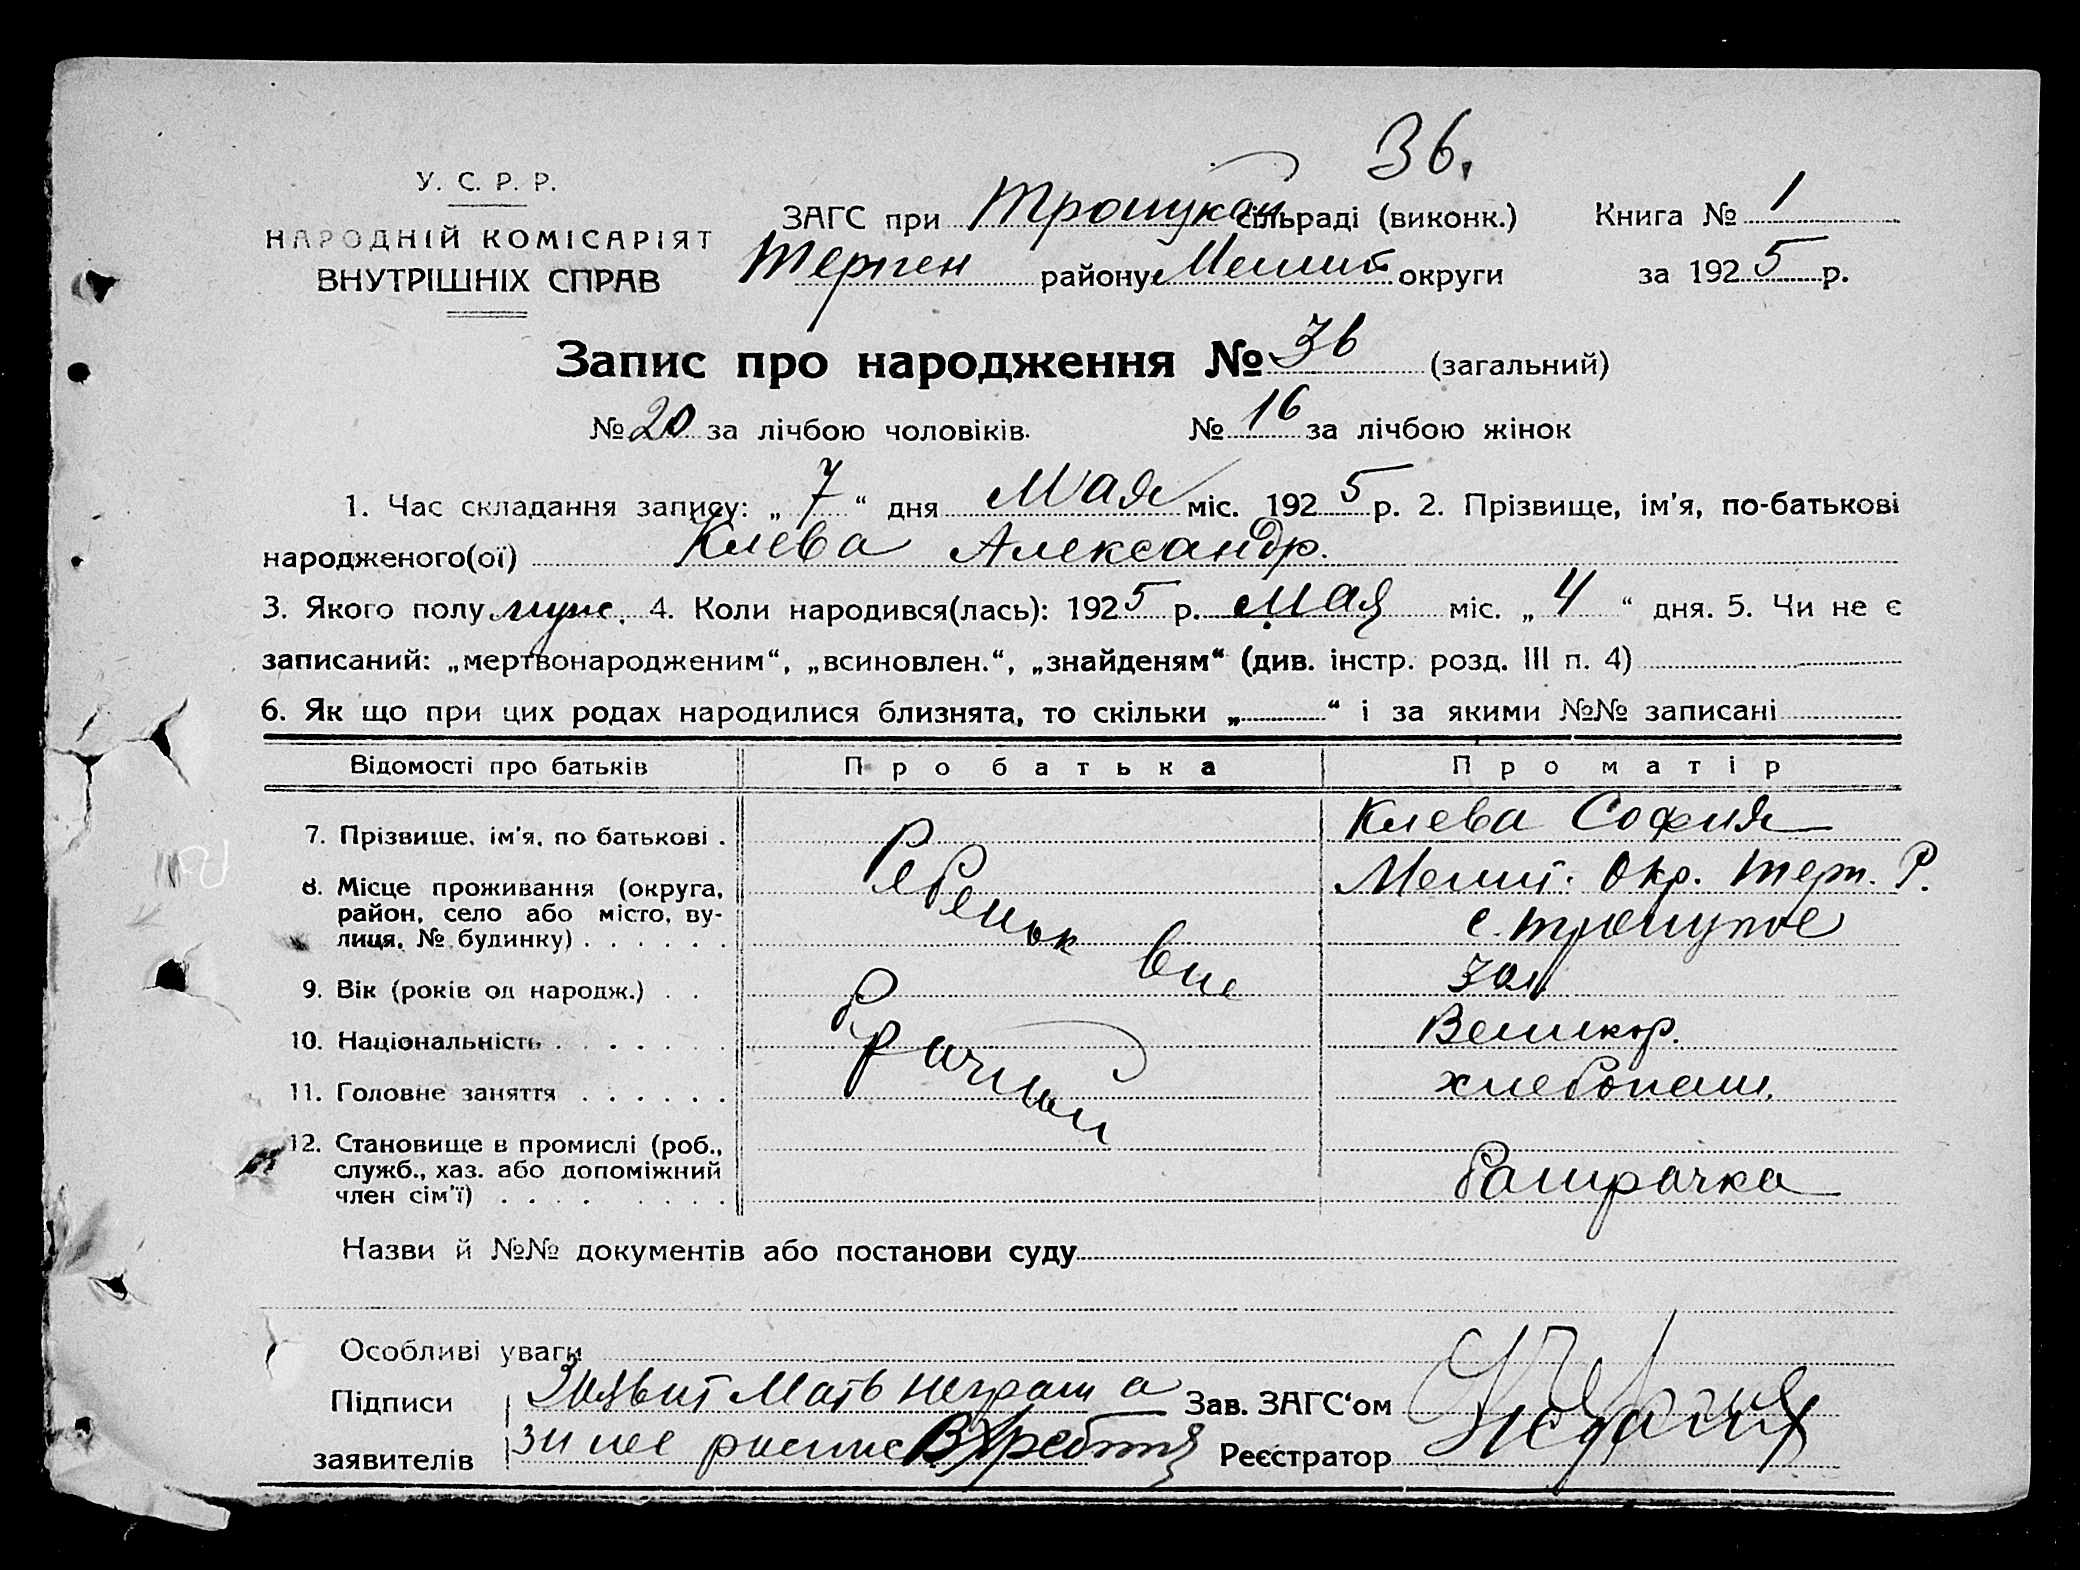 36.
У. С. Р. Р.
НАРОДНІЙ КОМІСАРІЯТ
ВНУТРІШНІХ СПРАВ
ЗАГС при сільраді (виконк.) Книга № 1
Терпен району Мелит округи за 1925 р.
Запис про народження № 36 (загальний)
№ 20 за лічбою чоловіків. № 16 за лічбою жінок
1. Час складання запису: „ 7 “ дня Мая міс. 1925 р. 2. Прізвище, ім'я, по-батькові
народженого(ої) Клева Александр.
3. Якого полу муж. 4. Коли народився(лась): 1925 р. Мая міс. „ 4 “ дня. 5. Чи не є
записаний: „мертвонародженим“, „всиновлен.“, „знайденям“ (див. інстр. розд. III п. 4)
6. Як що при цих родах народилися близнята, то скільки „ “ і за якими №№ записані
Відомості про батьків Про батька Про матір
7. Прізвище, ім'я, по батькові . Клева София
8. Місце проживання (округа, Мелит. Окр. Терп. Р.
район, село або місто, ву-
лиця, № будинку) . . . . . .
Ребенок вне
брачный
9. Вік (років од народж.) . .
10. Національність . . . . . . . Великор.
11. Головне заняття . . . . . . хлебопаш.
12. Становище в промислі (роб.,
служб., хаз. або допоміжний
член сім'ї) . . . . . . . . батрачка
Назви й №№ документів або постанови суду
Особливі уваги
Підписи Заявит Мать неграм а Зав. ЗАГС‘ом
заявителів за нее распис Реєстратор